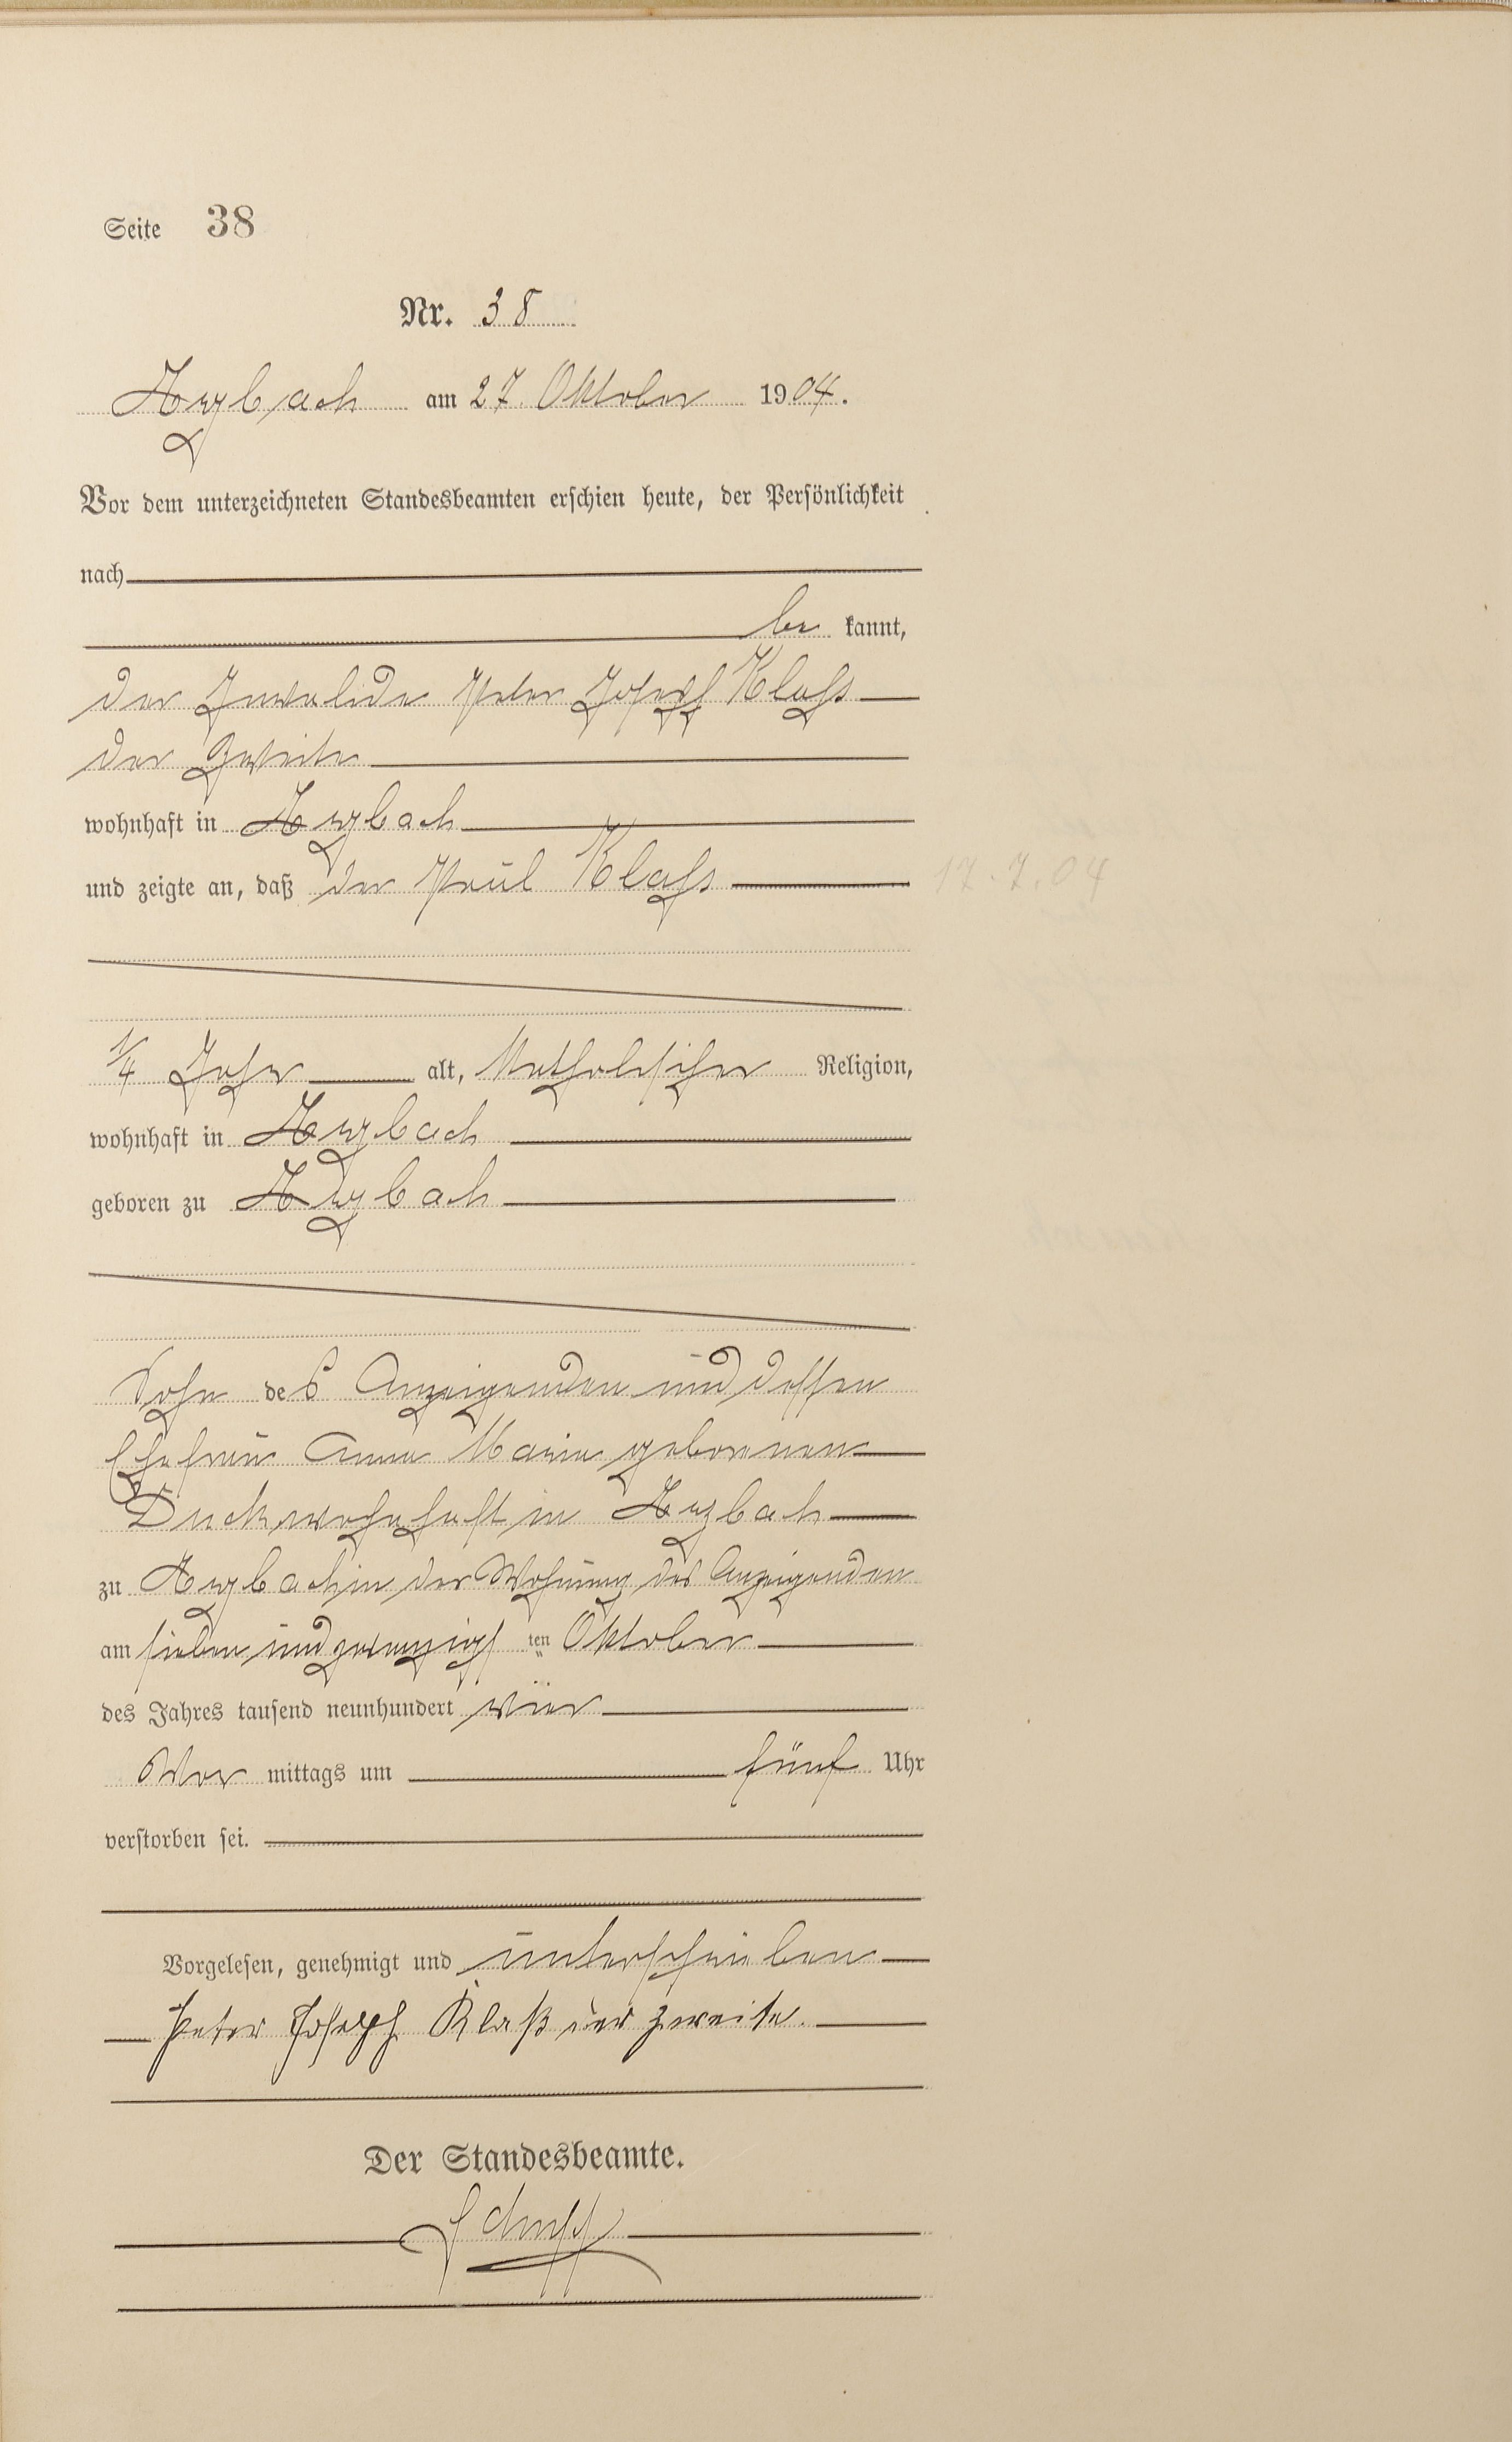 Seite 38
Nr. 38
Arzbach am 27. Oktober 1904.
Vor dem unterzeichneten Standesbeamten erschien heute, der Persönlichkeit
nach
be kannt,
der Invalide Peter Josef Klaß
der Zweite
wohnhaft in Arzbach
und zeigte an, daß der Paul Klaß
17.7.04
1/4 Jahr alt, katholischer Religion,
wohnhaft in Arzbach
geboren zu Arzbach
Sohn des Anzeigenden und dessen
Ehefrau Anna Maria geborenen
wohnhaft in Arzbach
zu Arzbach in der Wohnung des Anzeigenden
am sieben und zwanzigs ten Oktober
des Jahres tausend neunhundert vier
Vor mittags um fünf Uhr
verstorben sei.
Vorgelesen, genehmigt und unterschrieben
Peter Joseph Klaß der zweite.
Der Standesbeamte.